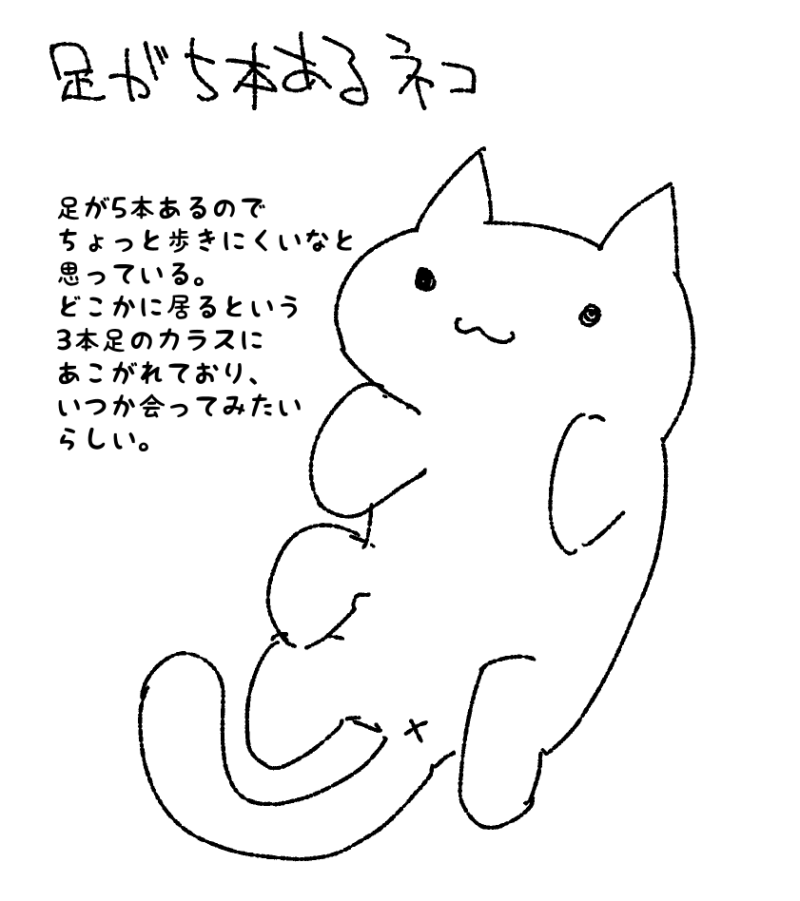 足が5本あるネコ
足が5本あるので
ちょっと歩きにくいなと
思っている。
どこかに居るという
3本足のカラスに
あこがれており、
いつか会ってみたい
らしい。